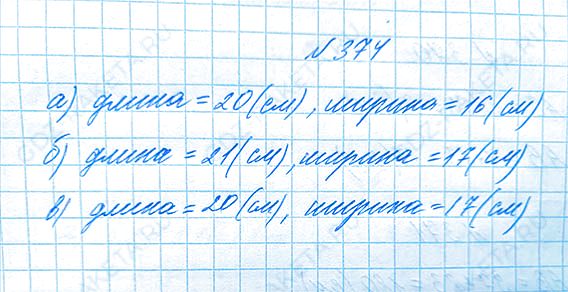 № 374
а) длина = 20 (см), ширина = 16 (см)
б) длина = 21 (см), ширина = 17 (см)
в) длина = 20 (см), ширина = 17 (см)